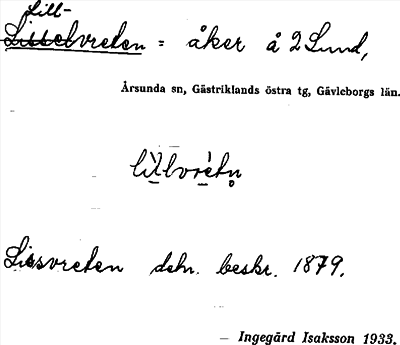 Lill-
Lisselvreten = åker å 2 Lund,
Årsunda sn, Gästriklands östra tg, Gävleborgs län.
lìlvrétn̥
Lissvreten dehn. beskr. 1879.
Ingegärd Isaksson 1933.